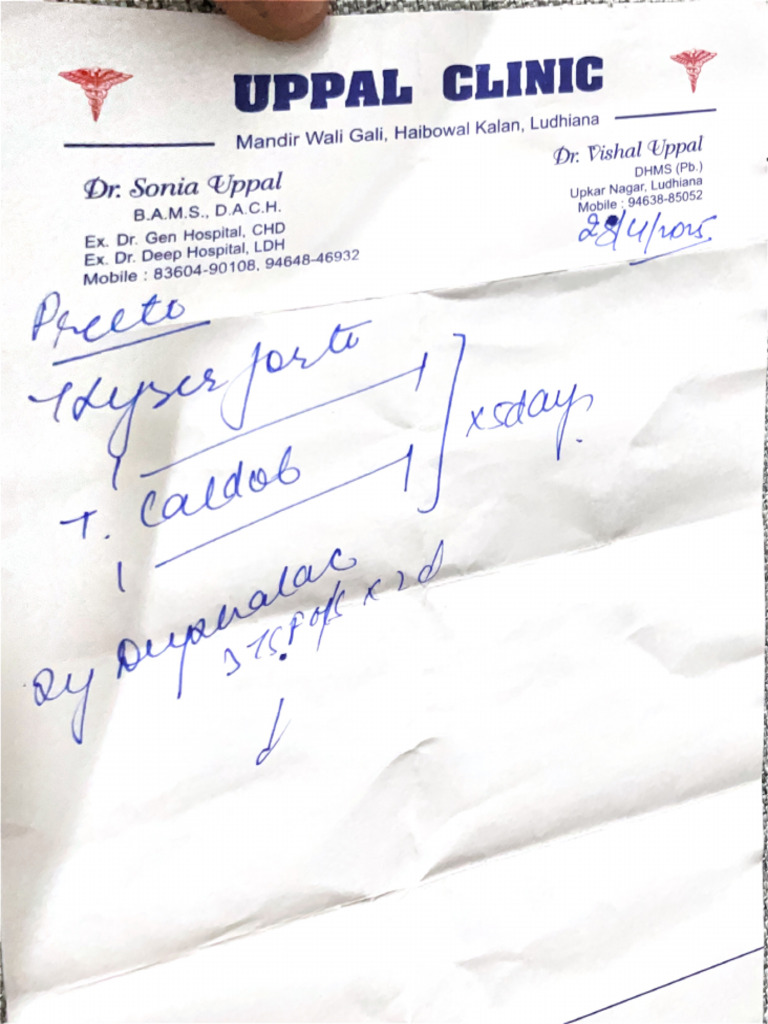 UPPAL CLINIC
Mandir Wali Gali, Haibowal Kalan, Ludhiana
Dr. Sonia Uppal
B.A.M.S., D.A.C.H.
Ex. Dr. Gen Hospital, CHD
Ex. Dr. Deep Hospital, LDH
Mobile : 83604-90108, 94648-46932
Dr. Vishal Uppal
DHMS (Pb.)
Upkar Nagar, Ludhiana
Mobile : 94638-85052
28/4/2025
Preeto
forte
1 1
x5days
T. Caldob
1 1
Sy
3 TSP x 2d